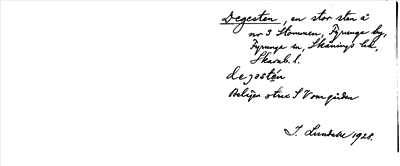 Degesten, en stor sten å
nr 3 Stommen, Fyrunga by,
Fyrunga sn, Skånings hd,
Skarab. l.
degostén
Belägen strax S om gården
J. Lundahl 1928.